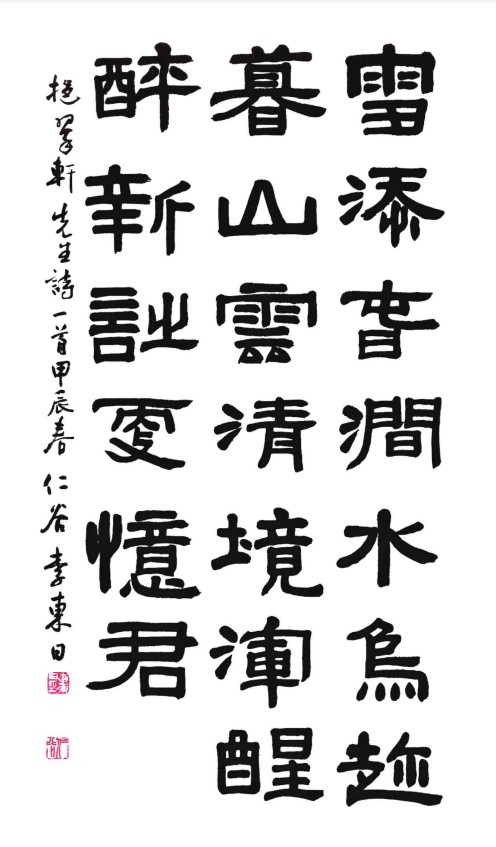 雪添春澗水烏趂
暮山雲清境渾醒
醉新詩更憶君
挹翠軒先生詩一首甲辰春 仁谷 李東日
仁谷